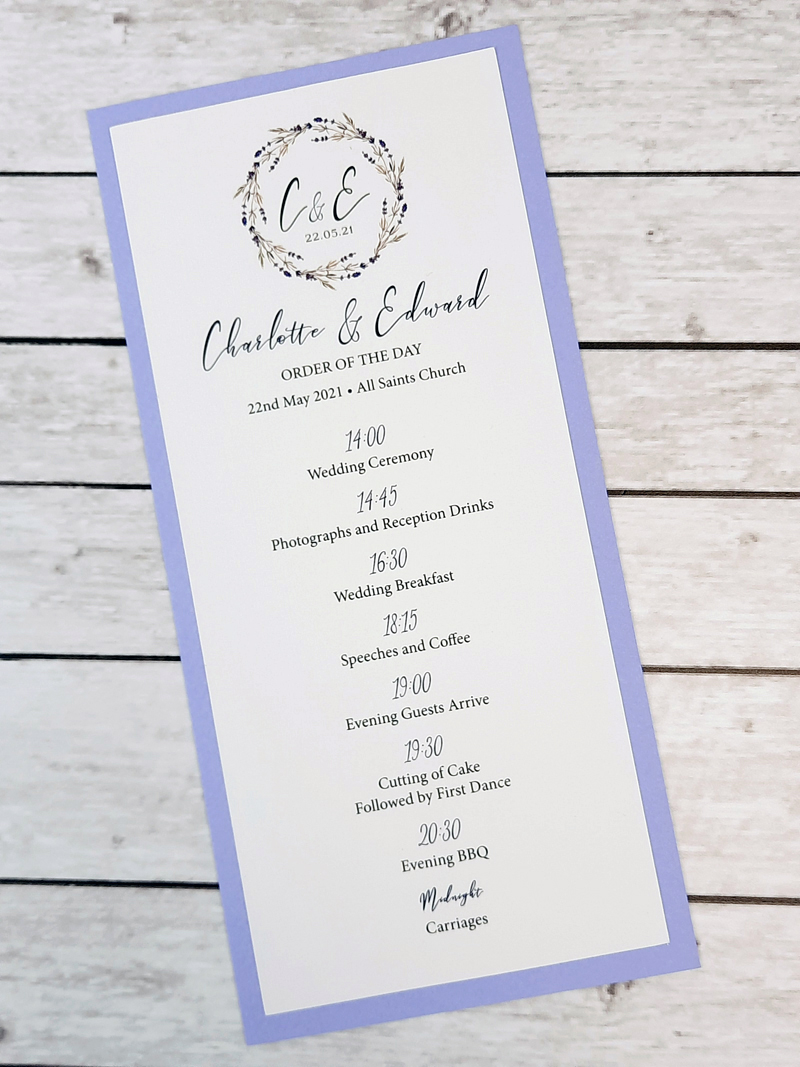 C & E
22.05.21
Charlotte & Edward
ORDER OF THE DAY
22nd May 2021 • All Saints Church
14:00
Wedding Ceremony
14:45
Photographs and Reception Drinks
16:30
Wedding Breakfast
18:15
Speeches and Coffee
19:00
Evening Guests Arrive
19:30
Cutting of Cake
Followed by First Dance
20:30
Evening BBQ
Midnight
Carriages